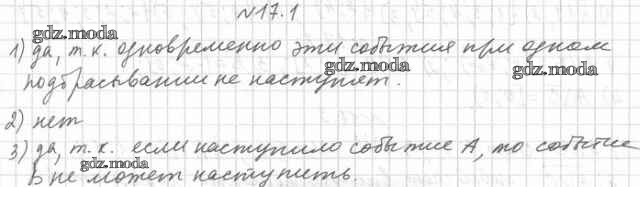 №17.1
gdz.moda
1) да, т.к. одновременно эти события при одном
gdz.moda gdz.moda
подбрасывании не наступят.
2) нет
3) да, т.к. если наступило событие А, то событие
gdz.moda
В не может наступить.